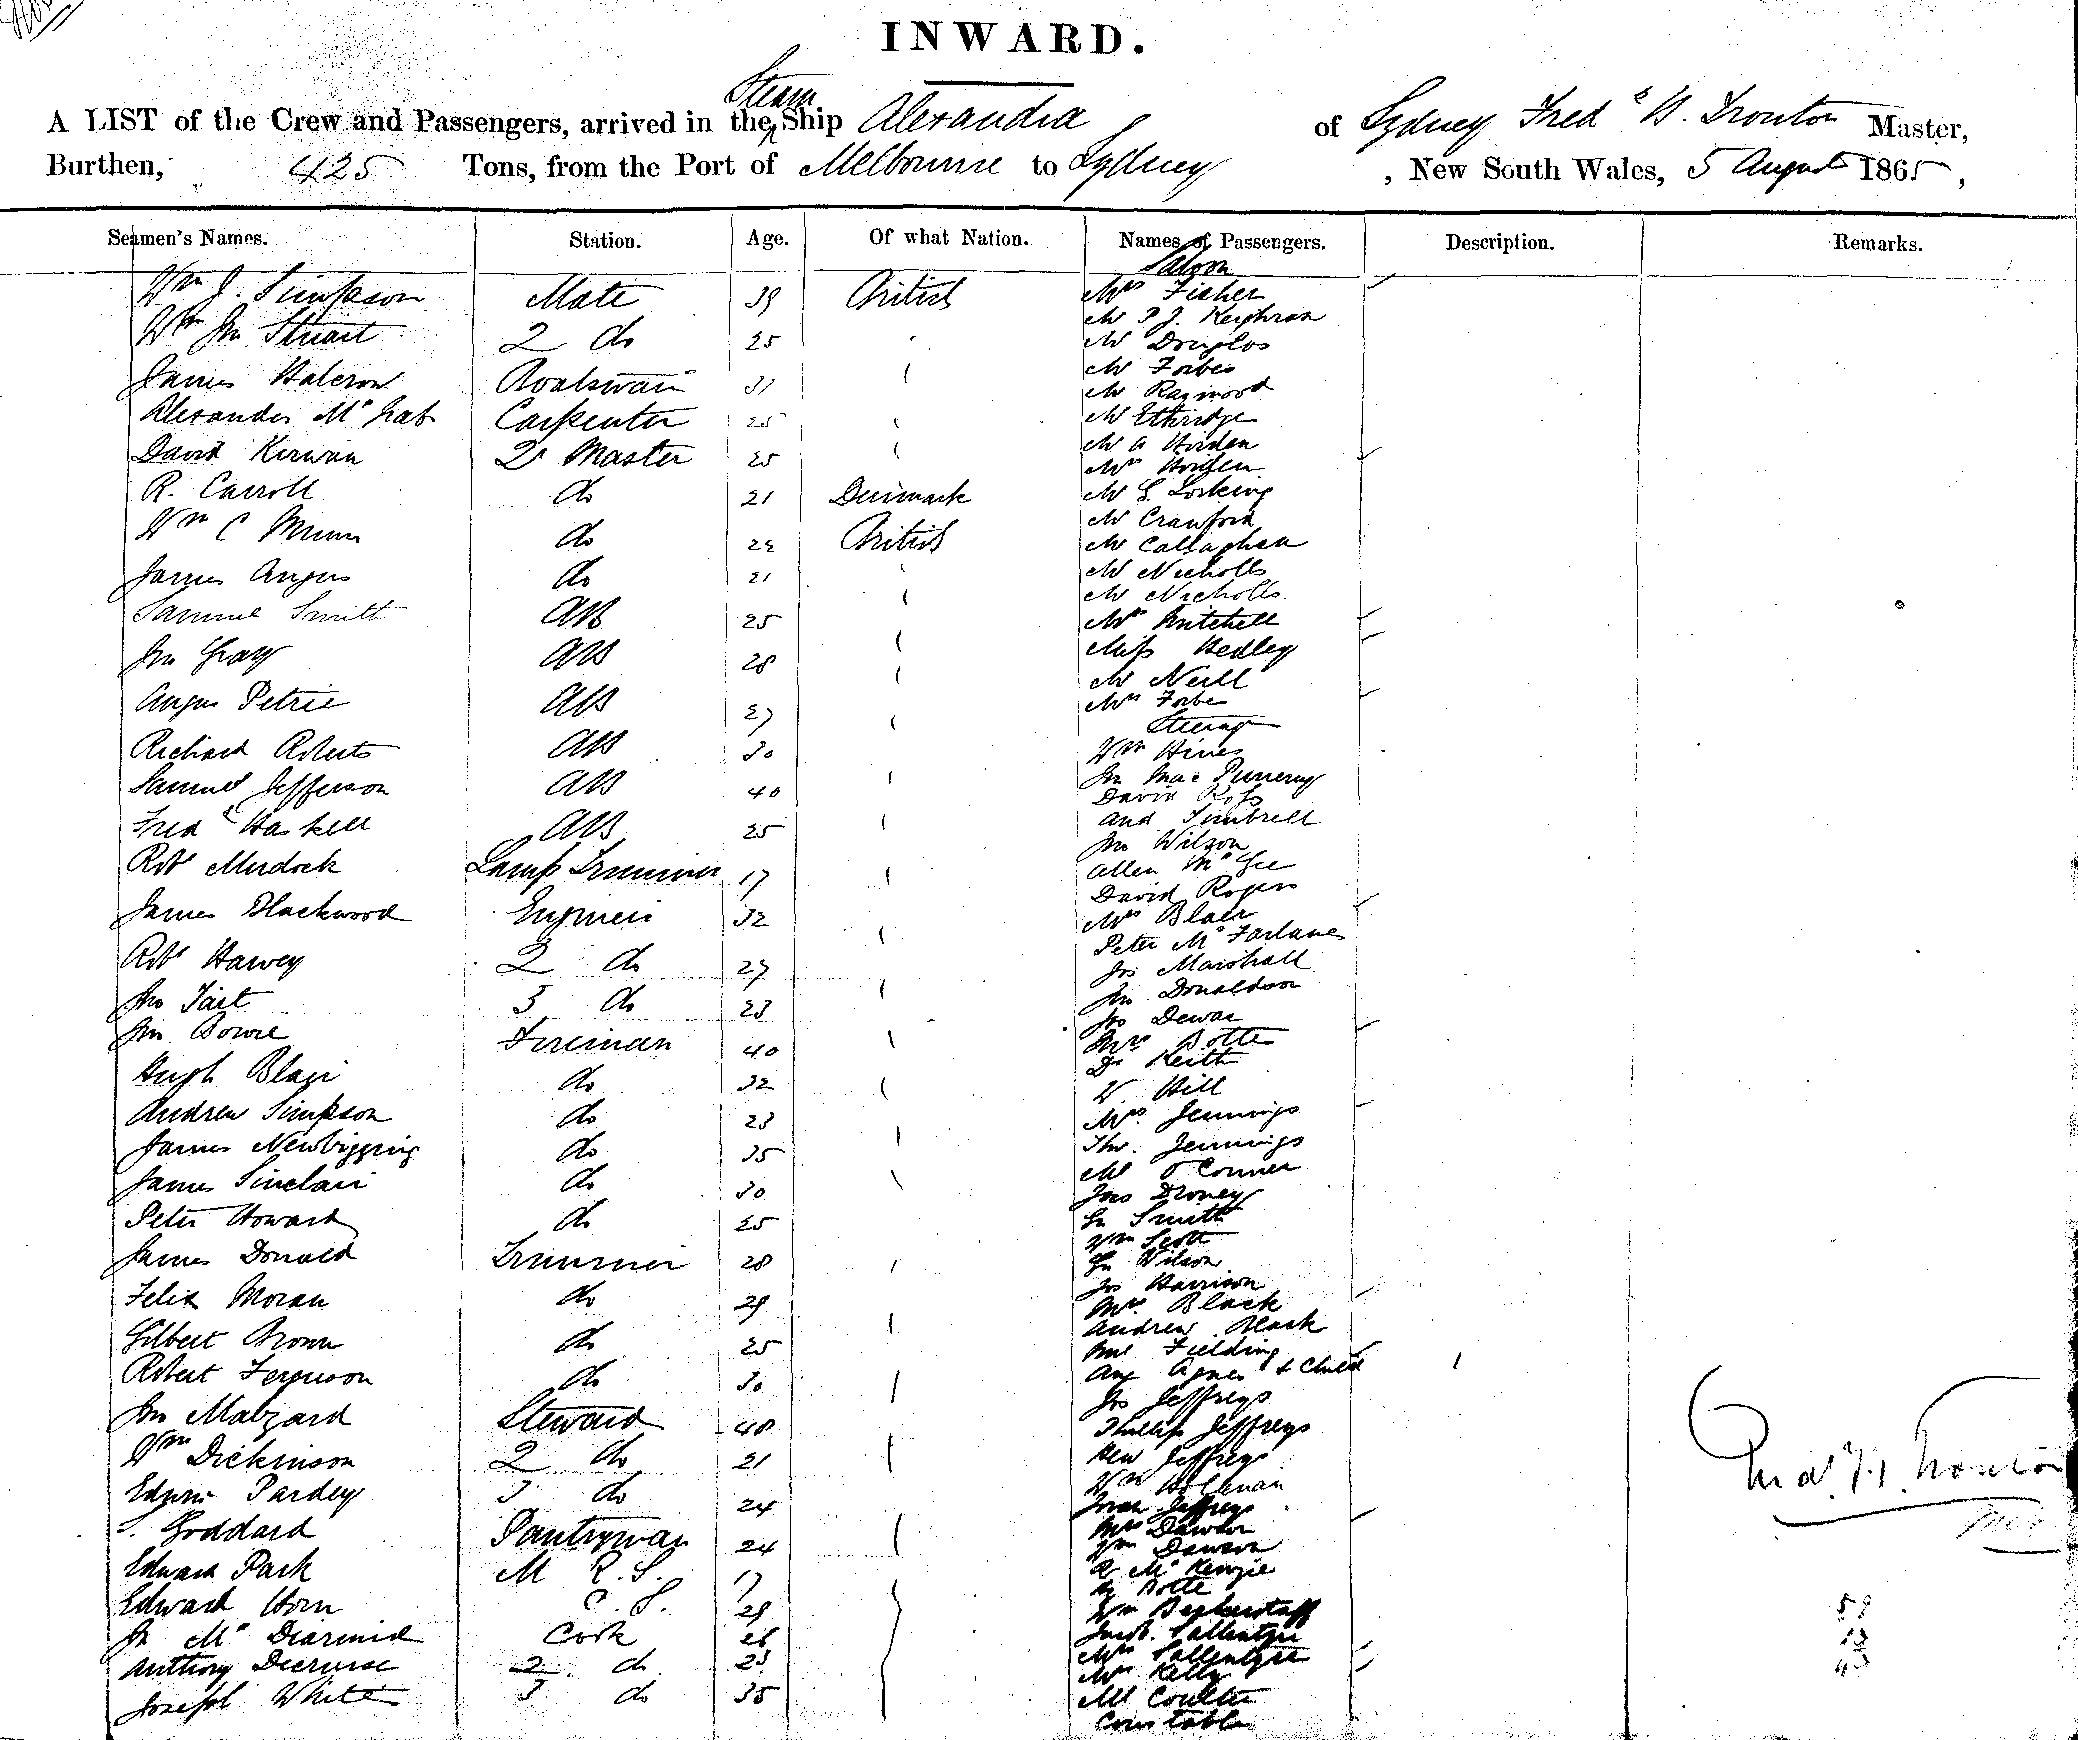 INWARD.
A LIST of the Crew and Passengers, arrived in the Steam Ship Alexandra of Sydney Fredk H. Trouton Master,
Burthen, 425 Tons, from the Port of Melbourne to Sydney, New South Wales, 5 August 1865,
Seamen's Names. Station. Age. Of what Nation. Names of Passengers. Description. Remarks.
Saloon
Wm J. Simpson Mate 39 British Mrs Fisher
Mr P J.
Wm Jn Stuart 2 do 25 Mr Douglas
Mr Forbes
James Halcrow Boatswain 31 Mr
Alexander McNab Carpenter 25 Mr Ethridge
Mr A Horden
David Kirwan 2r Master 25 Mrs Horden
R. Carroll do 21 Denmark Mr G. Losking
Mr Crawford
Wm C Munn do British Mr Callaghan
Mr Nicholls
James Angus do 21 Mr Nicholls
Samuel Smith AB 25 Mrs Mitchell
Jn Gray AB 28 Miss Hedley
Mr Neill
Angus Petrie AB 27 Mrs Forbes
Steerage
Richard Roberts AB 30 Wm Hines
Jn Mac
Samuel Jefferson AB 40 David Ross
Fredk Haskell AB 25 And Timbrell
Jn Wilson
Robt Murdock Lamp Trimmer 17 Allen McGee
David Rogers
James Blackwood Engineer 32 Mrs Blair
Peter McFarlane
Robt Harvey 2 do 27 Jos Marshall
Jn Tait 3 do 23 Jn Donaldson
Jn Bowie Fireman 40 Jos Dewar
Mrs Botte
D. Keith
Hugh Blair do 32 W. Hill
Andrew Simpson do 23 Mrs Jennings
James Newbigging do 35 Thos. Jennings
James Sinclair do 30 Mr O'Conner
Jas Droney
Peter Howard do 25 Gn Smith
Wm Scott
James Donald Trimmer 28 Gn Wilson
Jos Harrison
Felix Moran do 29 Mrs Black
Andrew Black
Gilbert Brown do 25 Fielding
Robert Ferguson do 30 Agnes & Child
Jos Jeffreys
Jn Malzard Steward 40 Phillip Jeffreys
Wm Dickinson 2 do 21 Hen Jeffreys
Wm
Edwin Pardey 3 do 24 Jeffreys
Mrs Dawson
S. Goddard Pantryman 24 Wm Dawson
Edward Park M R.S. 17 R McKenzie
Botte
Edward Horn C.S. 29 Wm
Jn McDiarmid Cook 26 Jacob. Sallentyre
Anthony Decruise 2 do 23 Mrs Sallentyre
Mrs Kelly
Joseph White 3 do 35 Mr Coulter
Constable
Fredk H. Trouton